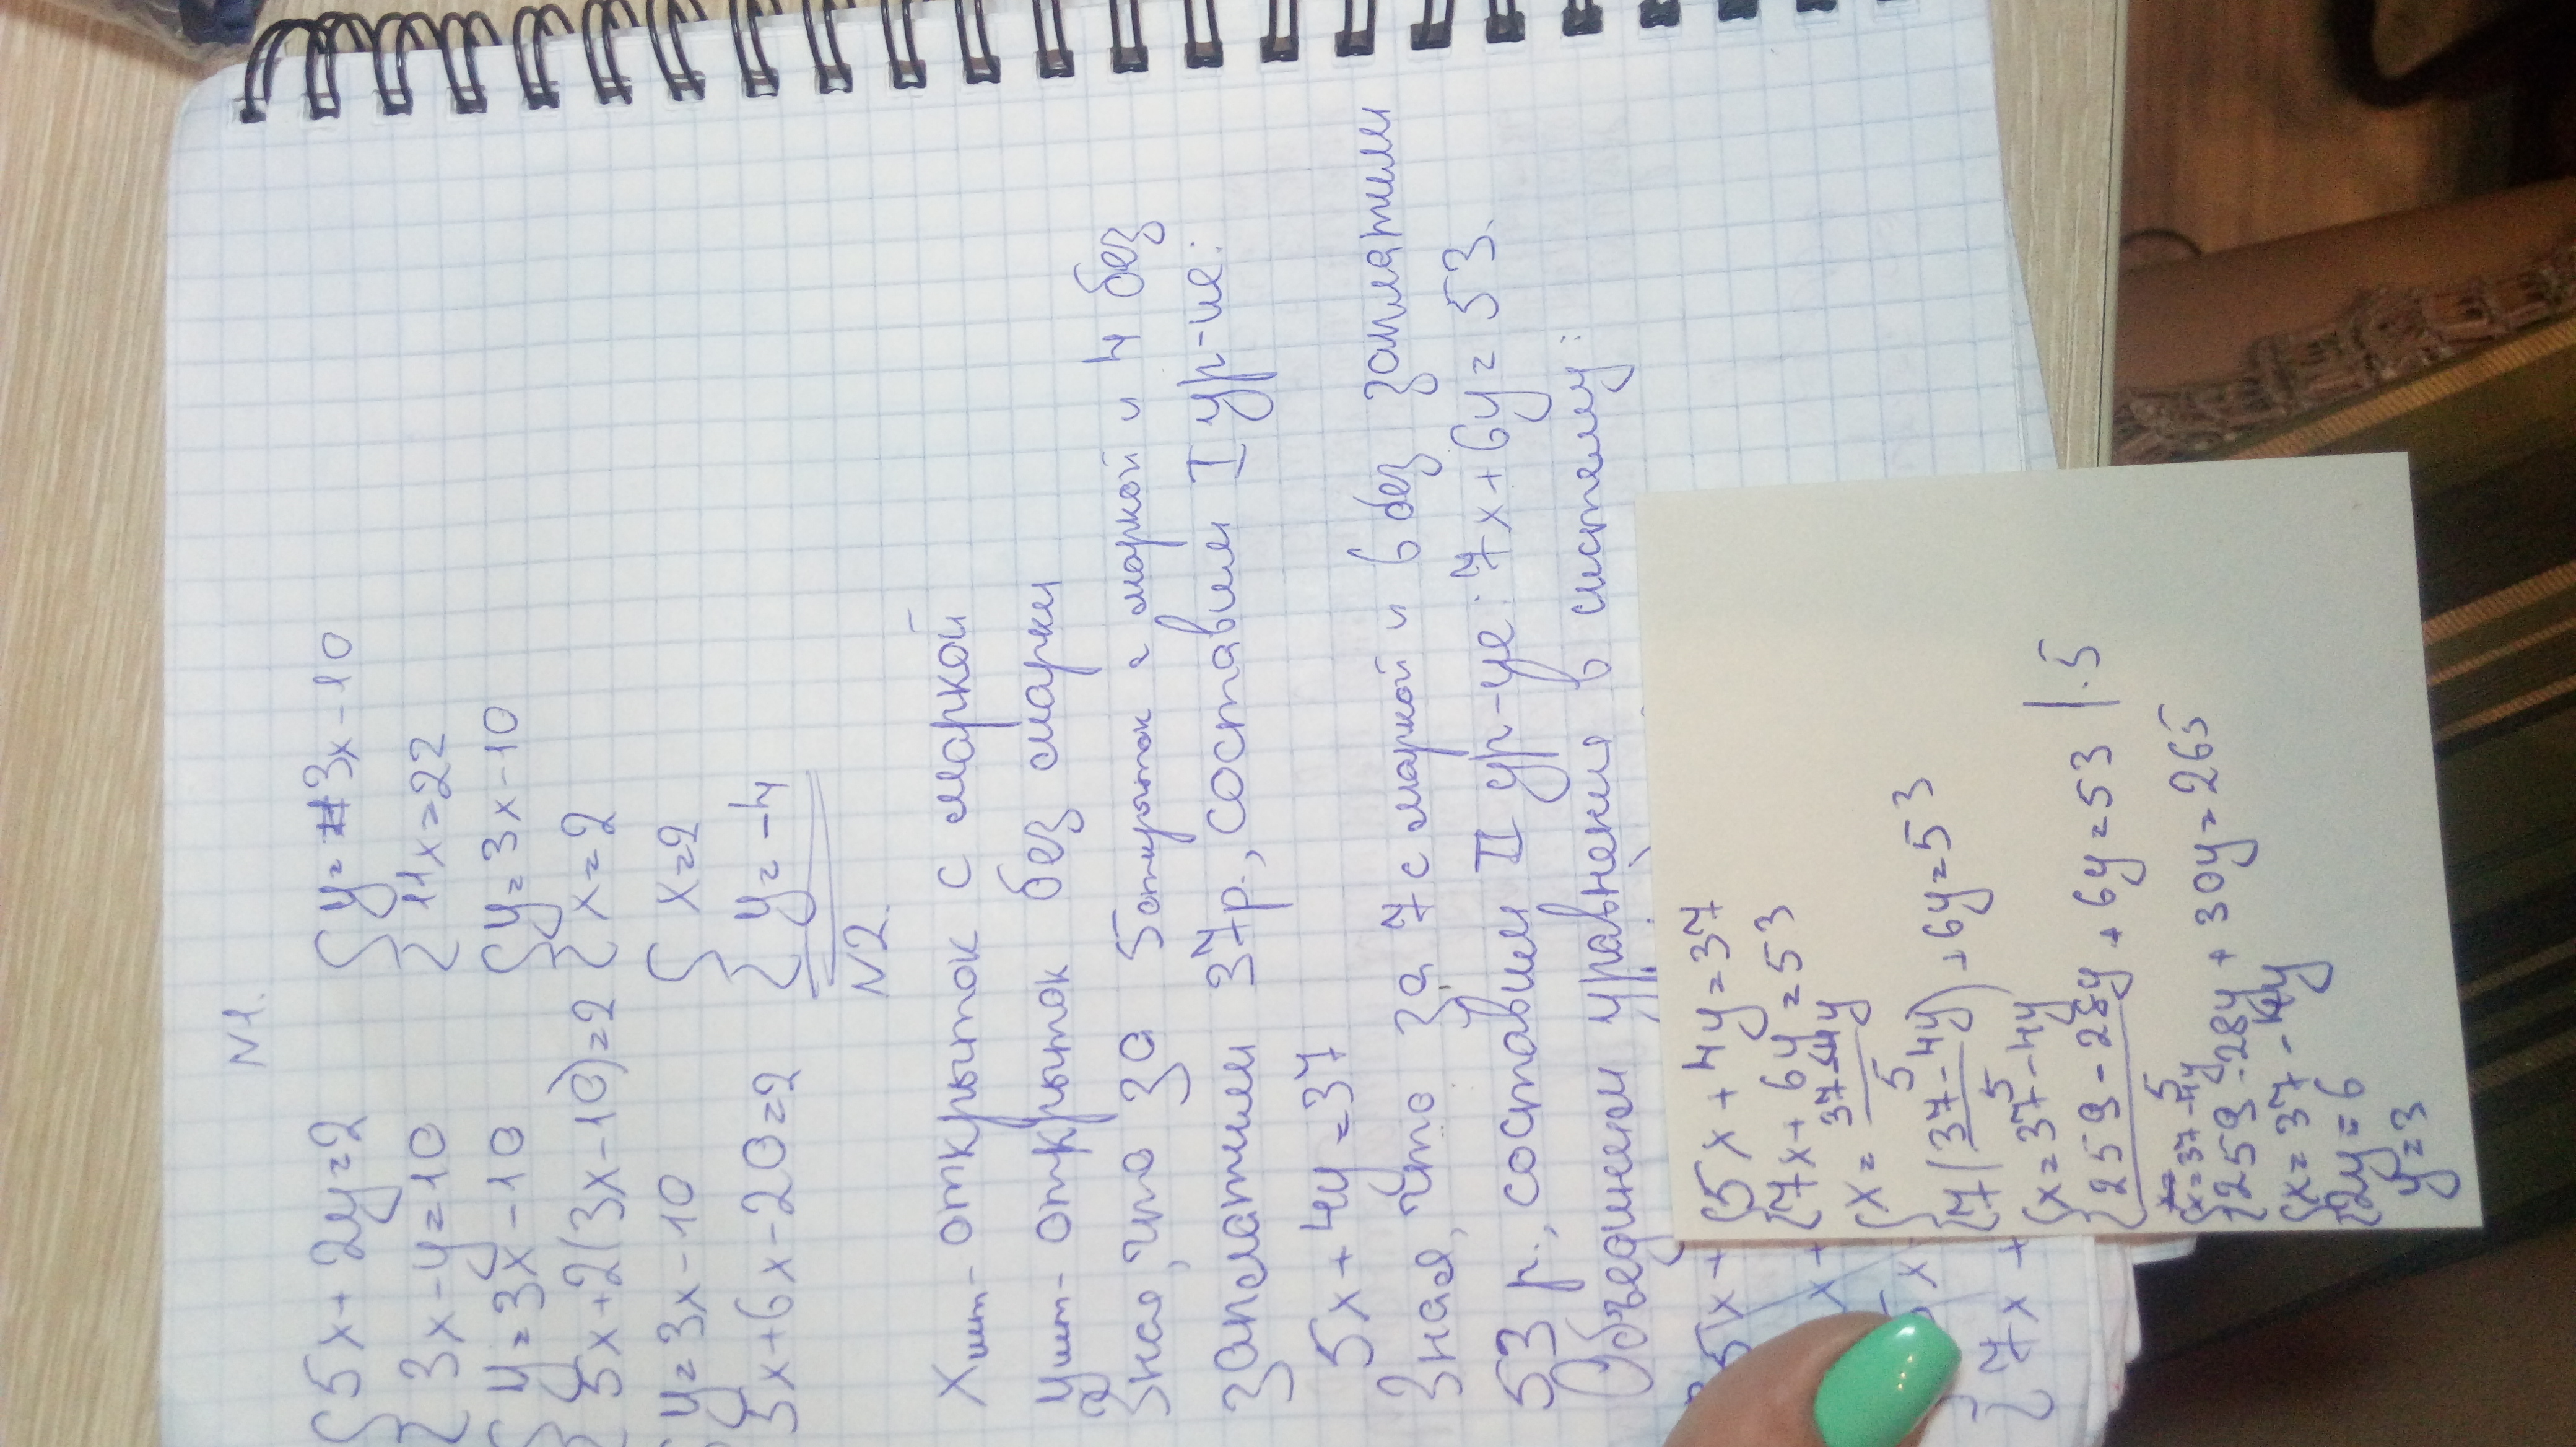 N1.
{5x+2y=2
{3x-y=10
{y=3x-10
{5x+2(3x-10)=2
{y=3x-10
{5x+6x-20=2
{y=3x-10
{11x=22
{y=3x-10
{x=2
{x=2
{y=-4
N2.
xшт- открыток с маркой
yшт- открыток без марки
Зная, что за 5 открыток с маркой и 4 без
заплатили 37р., составим I ур-ие:
5x+4y=37
Зная, что за 7 с маркой и 6 без заплатили
53 р., составим II ур-ие: 7x+6y=53.
Объединим уравнения в систему:
5x+
x+
5x
{7x+
{5x+4y=37
{7x+6y=53
{x=37-4y/5
{7(37-4y/5)+6y=53
{x=37-4y/5
{259-28y/5+6y=53 |·5
{x=37-4y/5
{259-28y+30y=265
{x=37-4y
{2y=6
y=3